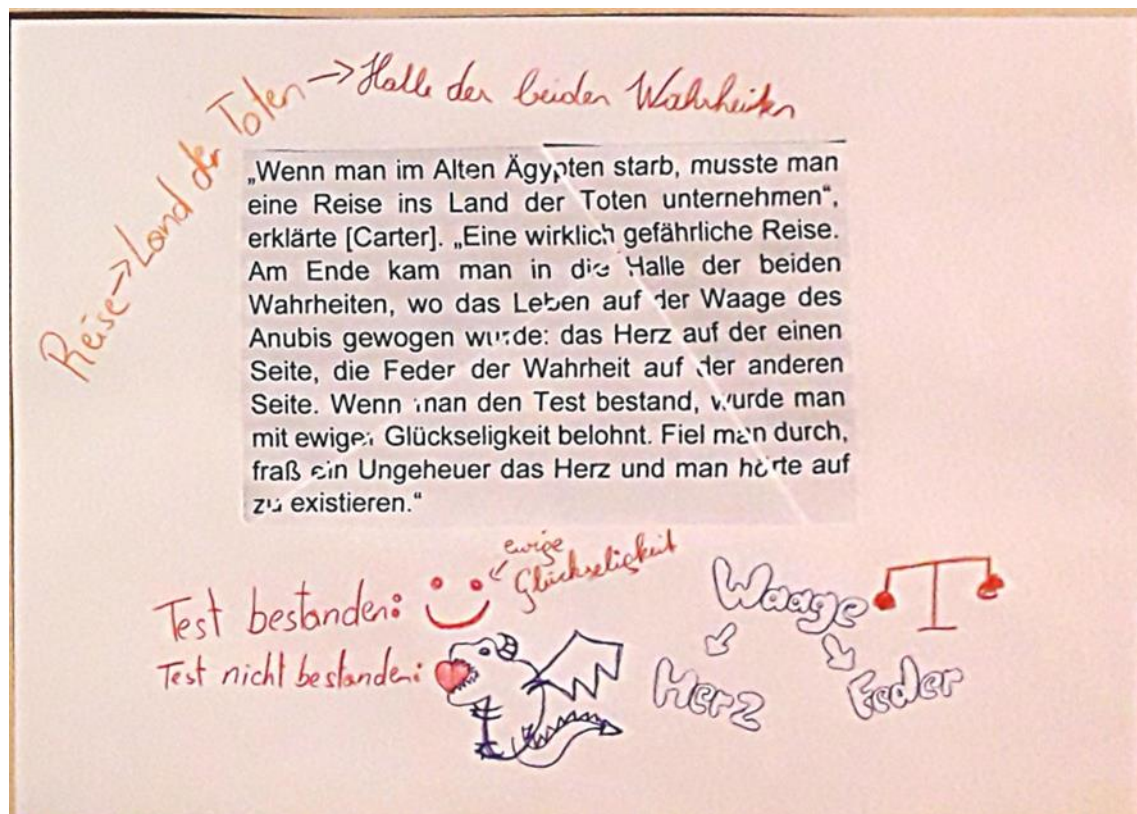 Reise → Land der Toten → Halle der beiden Wahrheiten
„Wenn man im Alten Ägypten starb, musste man
eine Reise ins Land der Toten unternehmen“,
erklärte [Carter]. „Eine wirklich gefährliche Reise.
Am Ende kam man in die Halle der beiden
Wahrheiten, wo das Leben auf der Waage des
Anubis gewogen wurde: das Herz auf der einen
Seite, die Feder der Wahrheit auf der anderen
Seite. Wenn man den Test bestand, wurde man
mit ewiger Glückseligkeit belohnt. Fiel man durch,
fraß ein Ungeheuer das Herz und man hörte auf
zu existieren.“
Test bestanden:
ewige
Glückseligkeit
Test nicht bestanden:
Waage
Herz
Feder